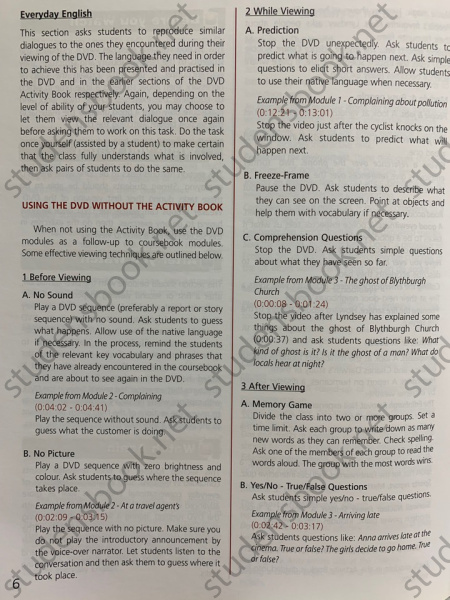 Everyday English
This section asks students to reproduce similar
dialogues to the ones they encountered during their
viewing of the DVD. The language they need in order
to achieve this has been presented and practised in
the DVD and in the earlier sections of the DVD
Activity Book respectively. Again, depending on the
level of ability of your students, you may choose to
let them view the relevant dialogue once again
before asking them to work on this task. Do the task
once yourself (assisted by a student) to make certain
that the class fully understands what is involved,
then ask pairs of students to do the same.
USING THE DVD WITHOUT THE ACTIVITY BOOK
When not using the Activity Book, use the DVD
modules as a follow-up to coursebook modules.
Some effective viewing techniques are outlined below.
1 Before Viewing
A. No Sound
Play a DVD sequence (preferably a report or story
sequence) with no sound. Ask students to guess
what happens. Allow use of the native language
if necessary. In the process, remind the students
of the relevant key vocabulary and phrases that
they have already encountered in the coursebook
and are about to see again in the DVD.
Example from Module 2 - Complaining
(0:04:02 - 0:04:41)
Play the sequence without sound. Ask students to
guess what the customer is doing.
B. No Picture
Play a DVD sequence with zero brightness and
colour. Ask students to guess where the sequence
takes place.
Example from Module 2 - At a travel agent's
(0:02:09 - 0:03:15)
Play the sequence with no picture. Make sure you
do not play the introductory announcement by
the voice-over narrator. Let students listen to the
conversation and then ask them to guess where it
took place.
6
2 While Viewing
A. Prediction
Stop the DVD unexpectedly. Ask students to
predict what is going to happen next. Ask simple
questions to elicit short answers. Allow students
to use their native language when necessary.
Example from Module 1 - Complaining about pollution
(0:12:21 - 0:13:01)
Stop the video just after the cyclist knocks on the
window. Ask students to predict what will
happen next.
B. Freeze-Frame
Pause the DVD. Ask students to describe what
they can see on the screen. Point at objects and
help them with vocabulary if necessary.
C. Comprehension Questions
Stop the DVD. Ask students simple questions
about what they have seen so far.
Example from Module 3 - The ghost of Blythburgh
Church
(0:00:08 - 0:01:24)
Stop the video after Lyndsey has explained some
things about the ghost of Blythburgh Church
(0:00:37) and ask students questions like: What
kind of ghost is it? Is it the ghost of a man? What do
locals hear at night?
3 After Viewing
A. Memory Game
Divide the class into two or more groups. Set a
time limit. Ask each group to write down as many
new words as they can remember. Check spelling.
Ask one of the members of each group to read the
words aloud. The group with the most words wins.
B. Yes/No - True/False Questions
Ask students simple yes/no - true/false questions.
Example from Module 3 - Arriving late
(0:02:42 - 0:03:17)
Ask students questions like: Anna arrives late at the
cinema. True or false? The girls decide to go home. True
or false?
studentsbook.net